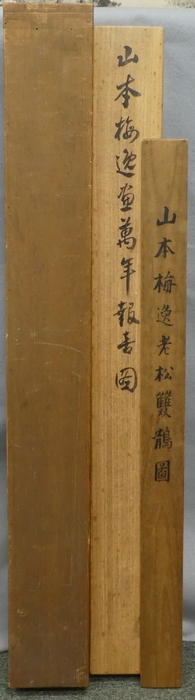 山本梅逸画萬年報喜図
山本梅逸老松雙鵲圖